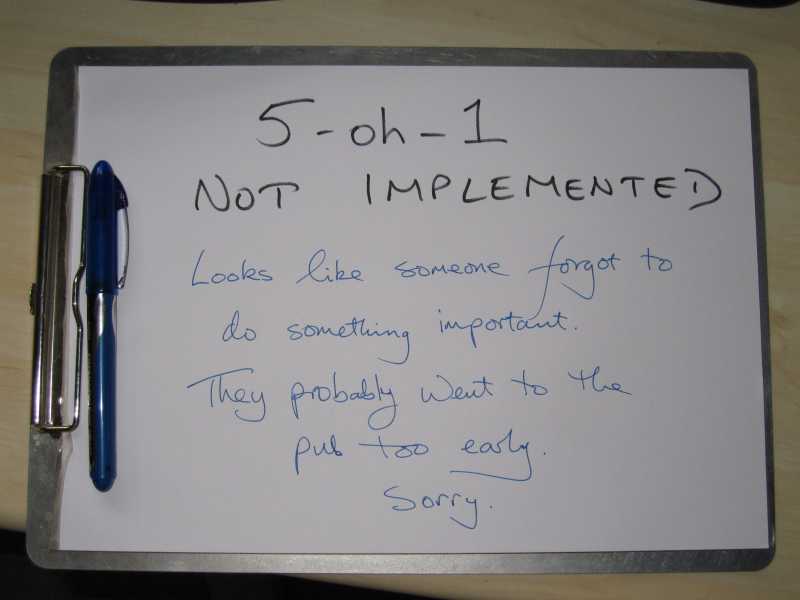 5-oh-1
NOT IMPLEMENTED
Looks like someone forgot to
do something important.
They probably went to the
pub too early.
Sorry.